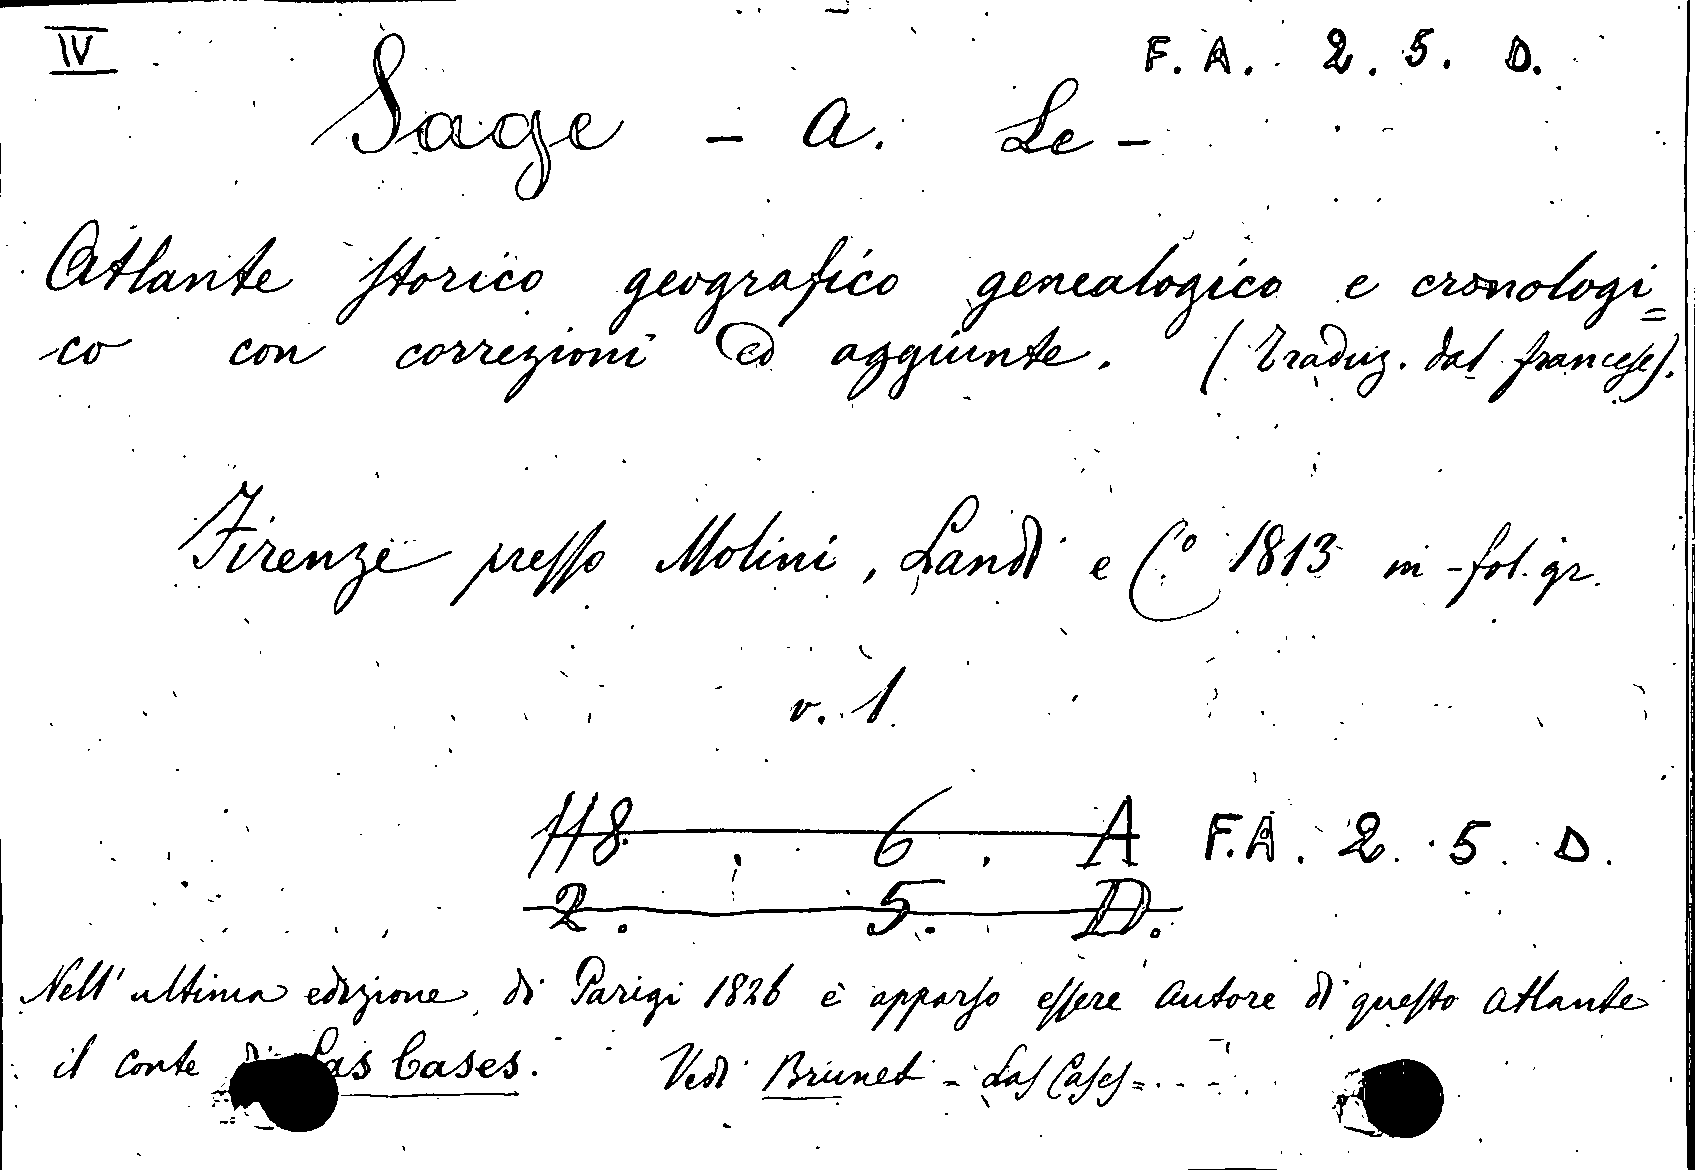 IV F. A. 2. 5. D.
Sage - A. Le -
Atlante storico geografico genealogico e cronologi=
co con correzioni ed aggiunte. (Traduz. dal francese).
Firenze presso Molini, Landi e Cº 1813 in-fol. gr.
v. 1.
118. 6. A F.A. 2. 5. D.
2. 5. D.
Nell' ultima edizione di Parigi 1826 è apparso essere autore di questo atlante
il conte di Las Cases. Vedi Brunet - Las Cases=...-